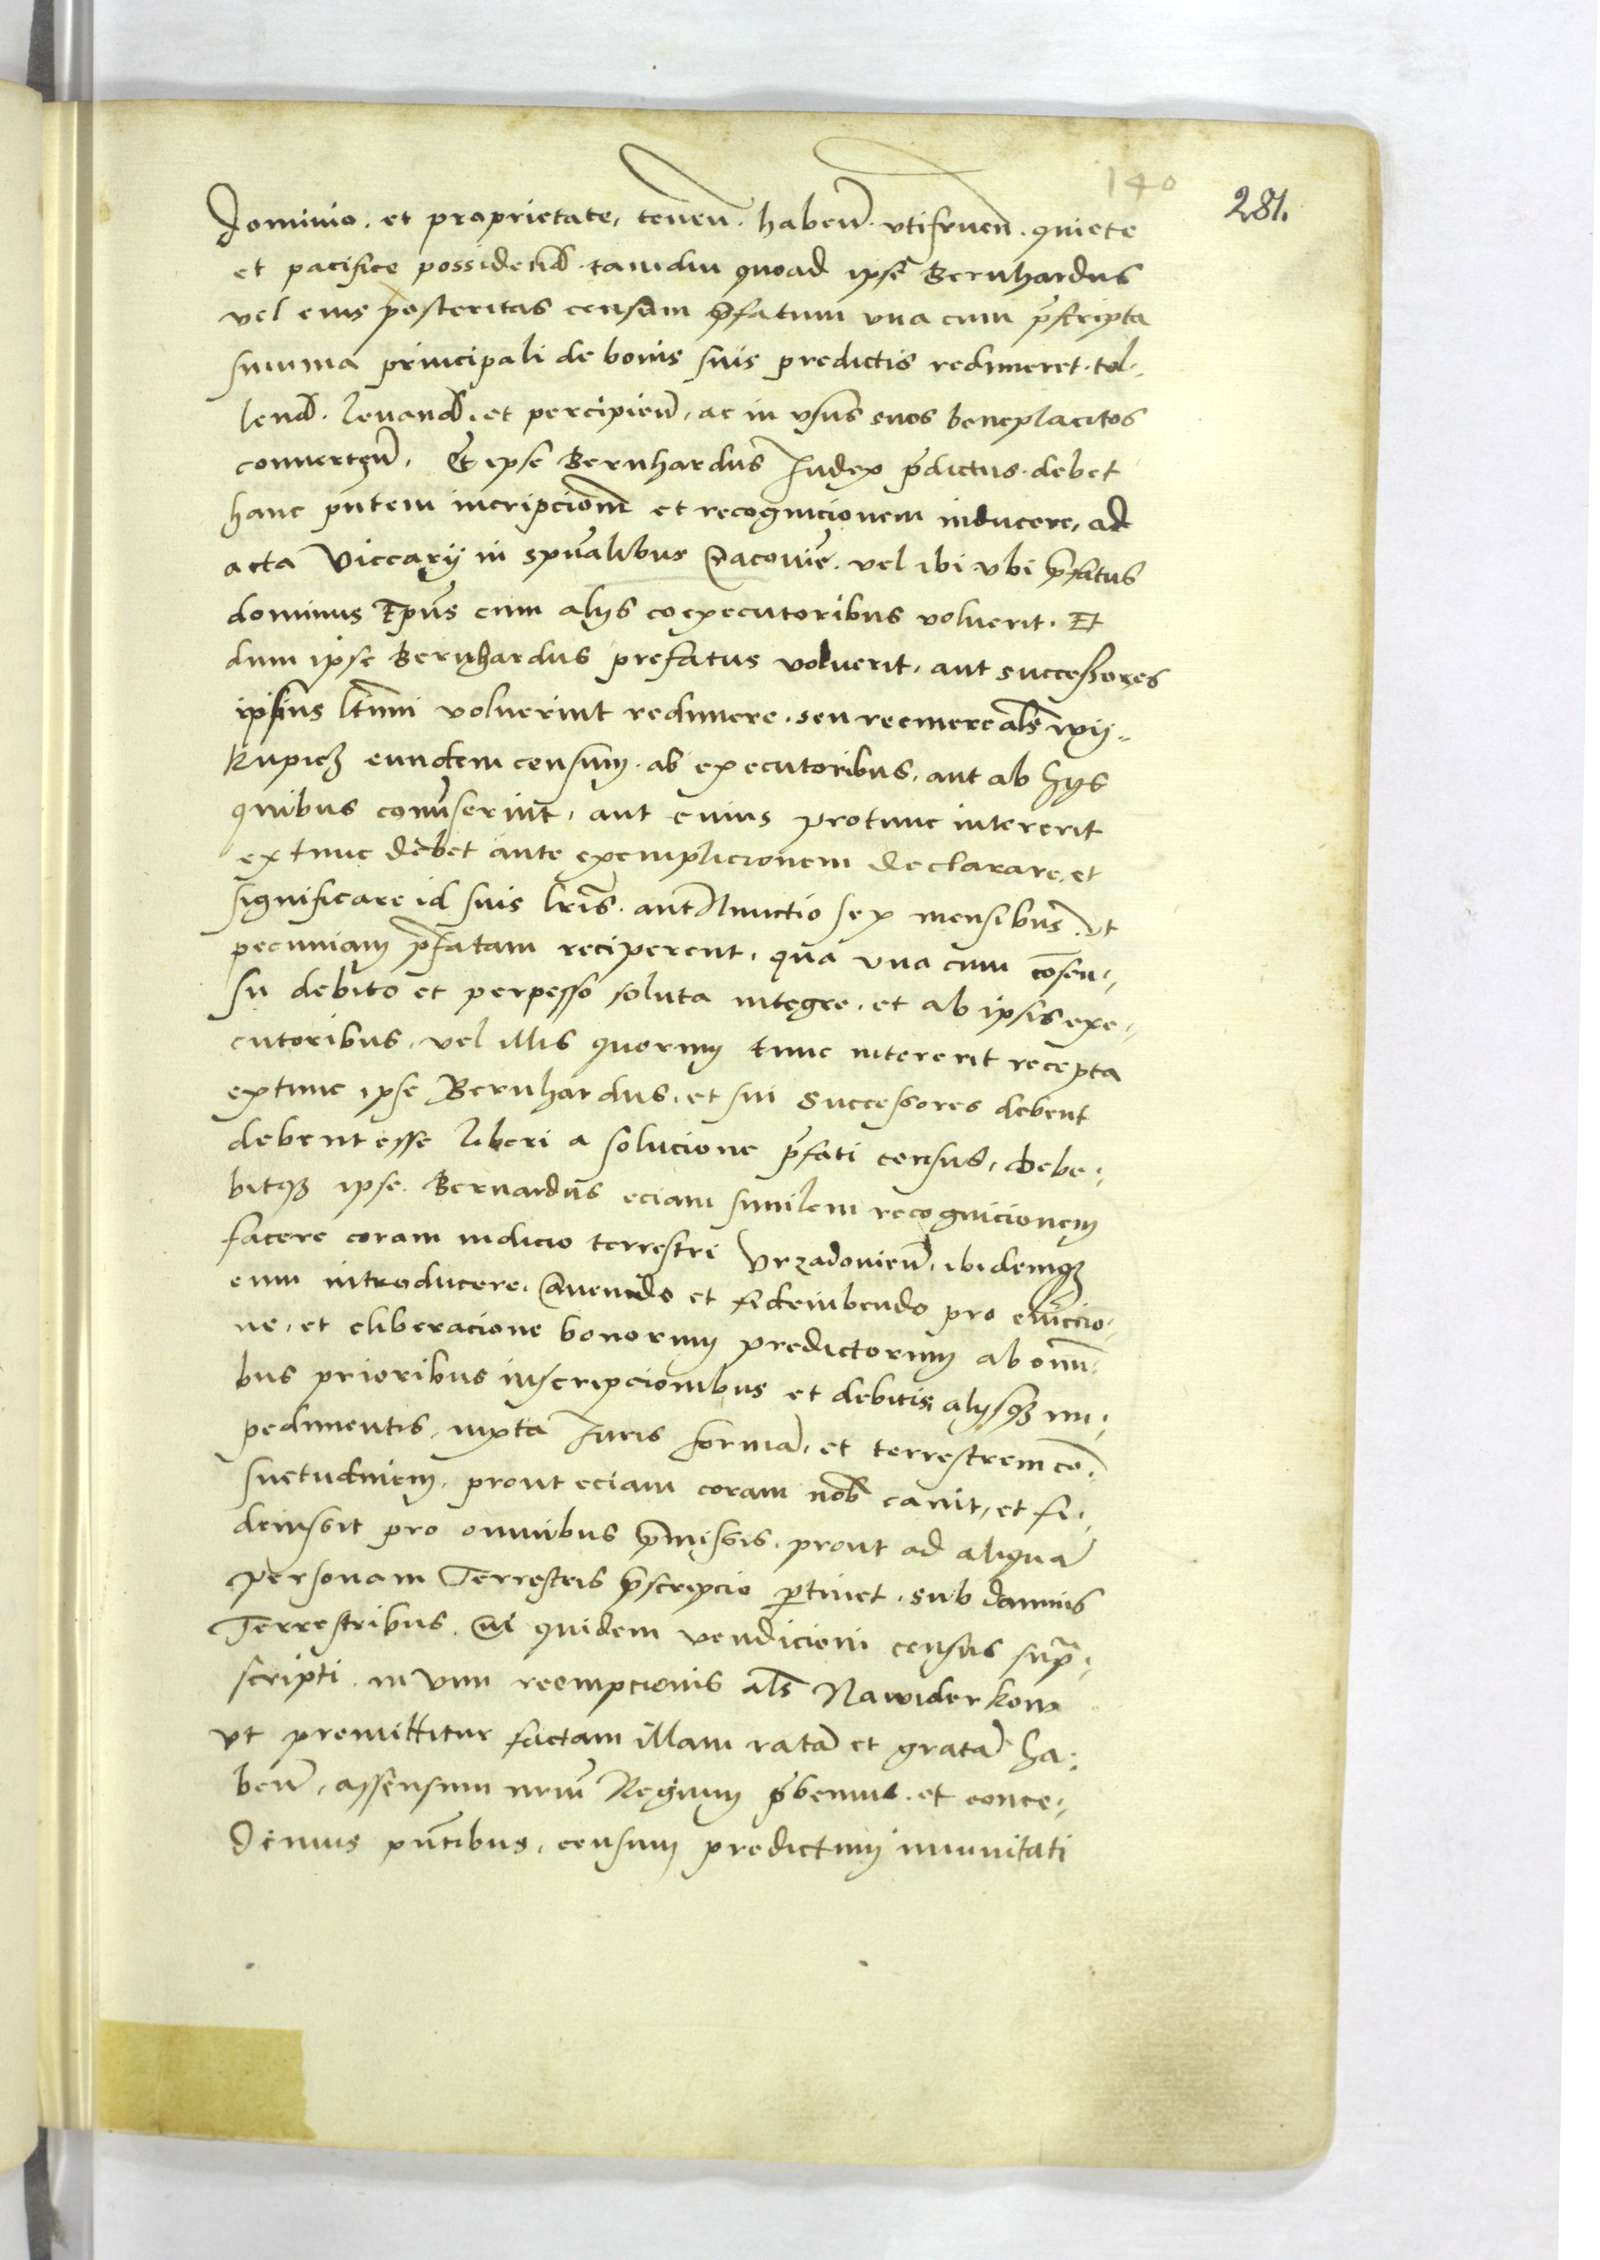 140
281.
dominio. et proprietate, tenen̄. haben̄. vtifruen̄. quiete
et pacifice possidend̄. tamdiu quoad ipse Bernhardus
vel eius posteritas censum p̄fatum vna cum p̄scripta
summa principali de bonis suis predictis redimeret. tol-
lend̄. leuand̄. et percipien̄. ac in vsus suos beneplacitos
conuerten̄. Et ipse Bernhardus Iudex p̄dictus. debet
hanc pn̄tem incripcionē et recognicionem inducere, ad
acta Viccarij in spūalibus Cracouie. vel ibi vbi p̄fatus
dominus Ep̄us cum alijs coexecutoribus voluerit. Et
dum ipse Bernhardus prefatus voluerit, aut successores
ipsius ltīmi voluerint redimere. seu reemere al̄s wÿ-
kupicz eundem censum. ab executoribus, aut ab hijs
quibus comiserint, aut cuius protunc intererit
extunc debet ante exemplicionem declarare, et
significare id suis lr̄is. aut Nunctio sex mensibus. vt
pecuniam p̄fatam reciperent, qua vna cum cōsen-
su debito et perpesso soluta integre. et ab ipsis exe-
cutoribus. vel illis quorum tunc intererit recepta
extunc ipse Bernhardus. et sui successores debent
debent esse liberi a solucione p̄fati census, debe-
bitqȝ ipse Bernardus eciam similem recognicionem
facere coram iudicio terrestri Vrzadouien̄. ibidemqȝ
eum introducere. Cauendo et fideiubendo pro euiccio-
ne, et eliberacione bonorum predictorum ab omni-
bus prioribus inscripcionibus et debitis, alijsqȝ im-
pedimentis, iuxta Iuris formā, et terrestrem cō-
suetudinem. prout eciam coram nob̄ cauit, et fi-
deiussit pro omnibus p̄missis. prout ad aliquā
personam Terrestris p̄scripcio p̄tinet. sub damnis
Terrestribus. Cui quidem vendicioni census supra-
scripti. in vim reempcionis al̄s Nawiderkow
vt premittitur factam illam ratā et gratā ha-
ben̄, assensum nrūm Regium p̄bemus. et conce-
dimus pn̄tibus, censum predictum imunitati